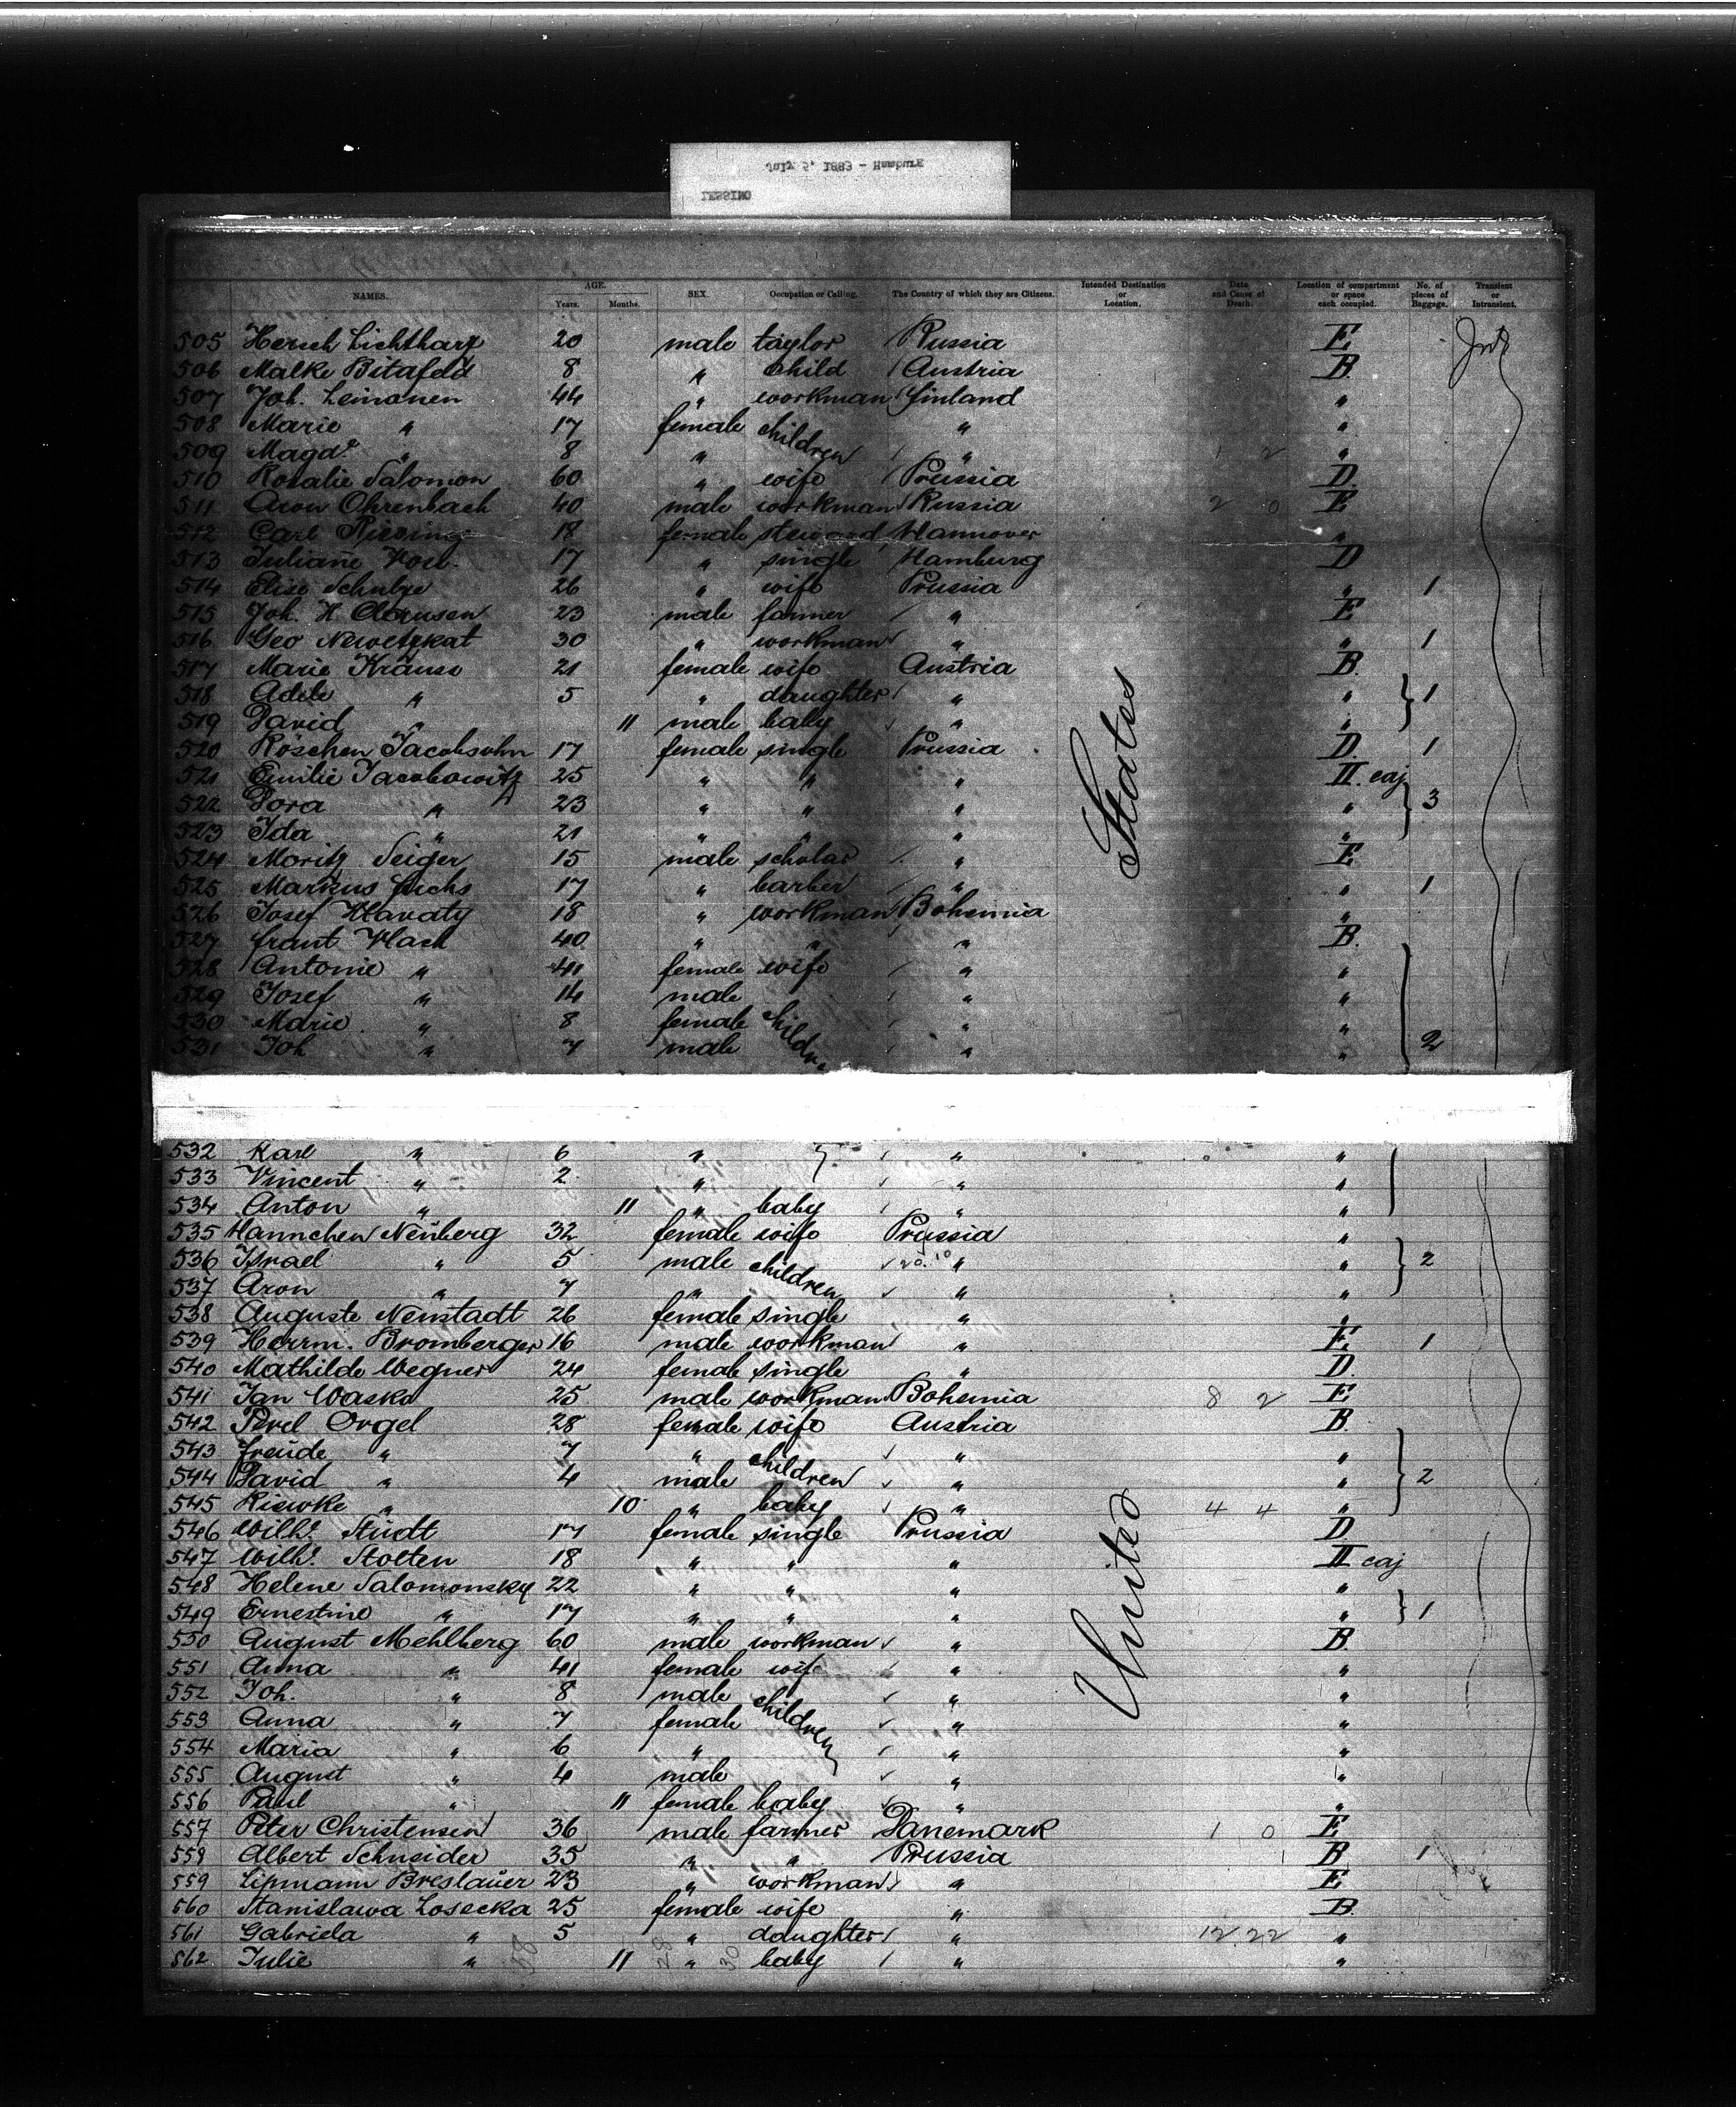 July 5, 1883 - Hamburg
LESSING
NAMES. AGE. Years. Months. SEX. Occupation or Calling. The Country of which they are Citizens. Intended Destination or Location. Date and Cause of Death. Location of compartment or space each occupied. No. of pieces of Baggage. Transient or Intransient.
505 Hersch 20 male taylor Russia E
506 Malke 8 " child Austria B.
507 Joh. Leinonen 44 " workman Finland "
508 Marie " 17 female children " "
509 Magd. " 8 " " " 1 2
510 Rosalie Salomon 60 " wife Prussia D
511 Aron Ohrenbach 40 male workman Russia 2 0 E
512 Carl 18 female steward Hannover "
513 Juliane 17 " single Hamburg D
514 Elise Schulze 26 " wife Prussia " 1
515 Joh. H. Clausen 23 male farmer " E
516 Geo Neweszkat 30 " workman " " 1
517 Marie Krause 21 female wife Austria B.
518 Adele " 5 " daughter " " 1
519 David " 11 male baby " "
520 Röschen Jacobsohn 17 female single Prussia D. 1
521 Emilie Jacobowitz 25 " " " II. caj
522 Dora " 23 " " " " 3
523 Ida " 21 " " " "
524 Moritz Seiger 15 male scholar " E
525 Markus Fuchs 17 " barber " " 1
526 Josef Hlavaty 18 " workman Bohemia "
527 Frant Vlach 40 " " " B.
528 Antonie " 41 female wife " "
529 Josef " 14 male " "
530 Marie " 8 female children " "
531 Joh " 7 male " " 2
532 Karl " 6 " " "
533 Vincent " 2 " " "
534 Anton " 11 " baby " "
535 Hannchen Neuberg 32 female wife Prussia "
536 Israel " 5 male children " " 2
537 Aron " 7 " " "
538 Auguste Neustadt 26 female single " "
539 Herrm. Bromberger 16 male workman " E. 1
540 Mathilde Wegner 24 female single " D.
541 Jan Waska 25 male workman Bohemia 8 2 E
542 Perl Orgel 28 female wife Austria B.
543 Freude " 7 " children " "
544 David " 4 male " " 2
545 Riewke " 10 " baby " 4 4 "
546 Wilhe. Stüdt 17 female single Prussia D
547 Wilhe. Stolten 18 " " " II caj
548 Helene Salomonsky 22 " " " "
549 Ernestine " 17 " " " " 1
550 August Mehlberg 60 male workman " B.
551 Anna " 41 female wife " "
552 Joh. " 8 male children " "
553 Anna " 7 female " "
554 Maria " 6 " " "
555 August " 4 male " "
556 Paul " 11 female baby " "
557 Peter Christensen 36 male farmer Danemark 1 0 E
558 Albert Schneider 35 " " Prussia B 1
559 Lipmann Breslauer 23 " workman " E
560 Stanislawa Losecka 25 female wife " B.
561 Gabriela " 5 " daughter " 12 22 "
562 Julie " 11 " baby " "
United States